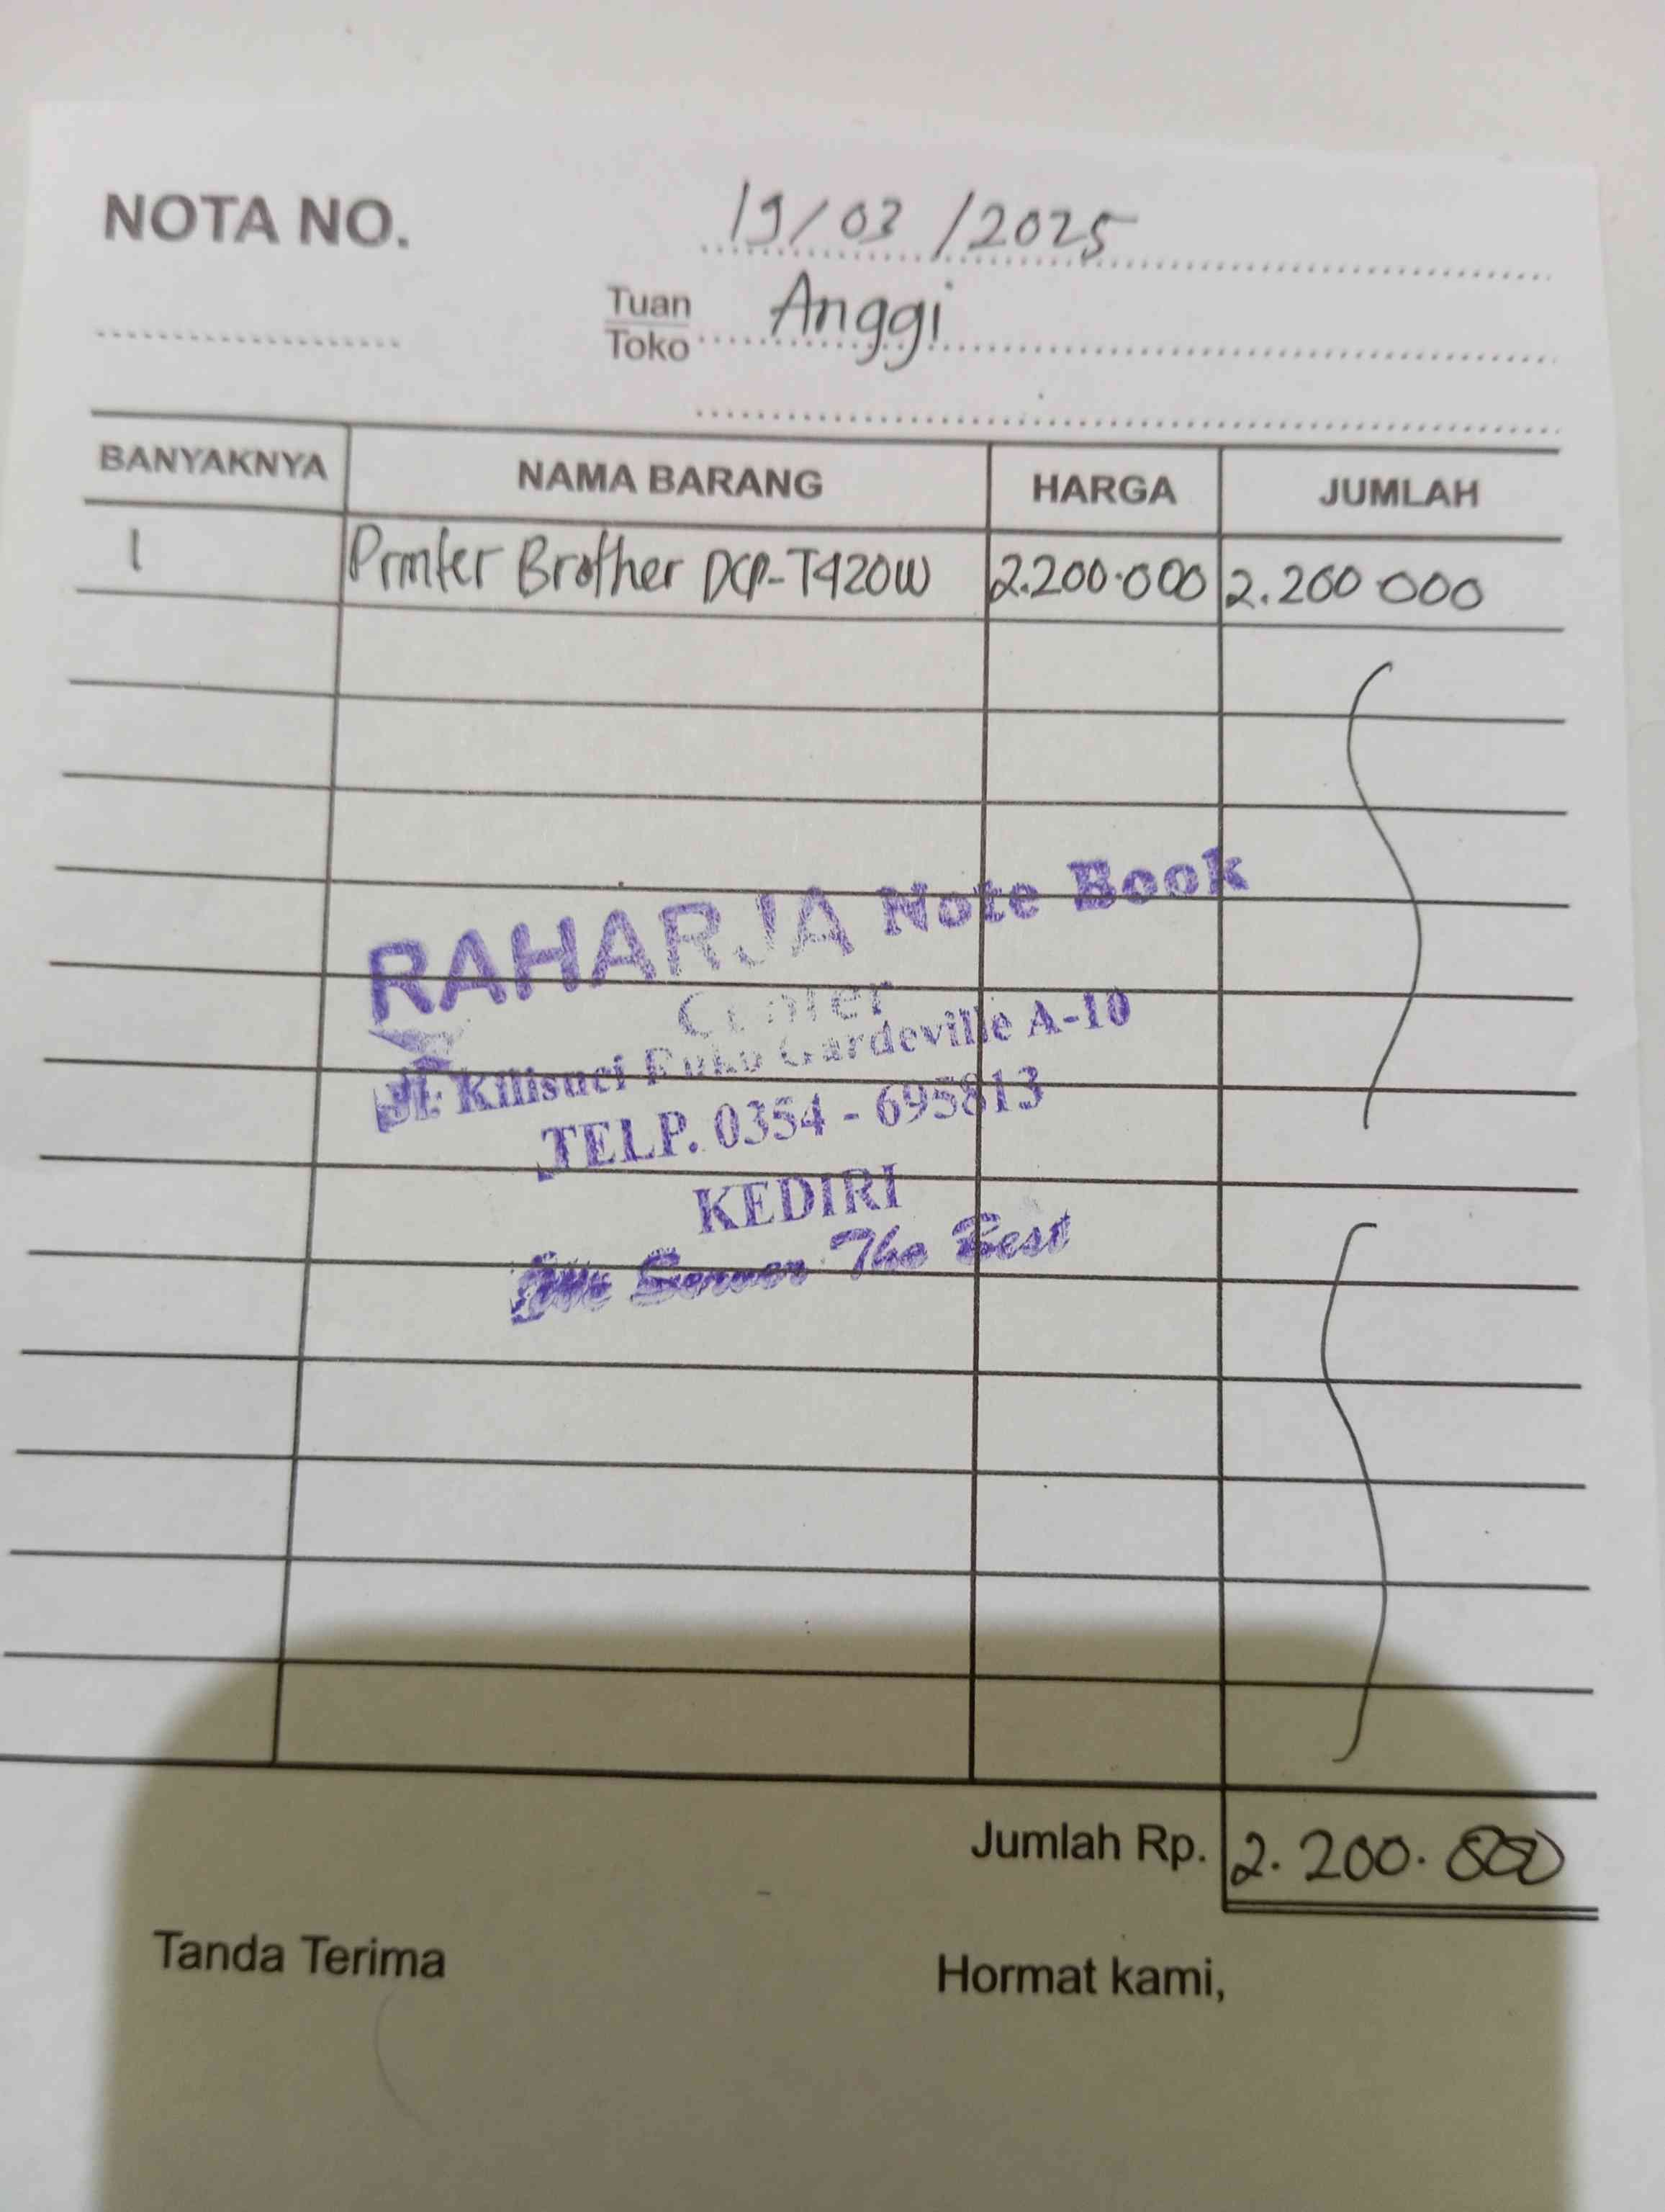 NOTA NO.
19/03/2025
Tuan
Toko
Anggi
BANYAKNYA NAMA BARANG HARGA JUMLAH
1 Printer Brother DCP-T420W 2.200.000 2.200.000
RAHARJA Note Book
Center
Jl. Kilisuci Ruko Gardeville A-10
TELP. 0354 - 695813
KEDIRI
The Best
Jumlah Rp. 2.200.000
Tanda Terima Hormat kami,